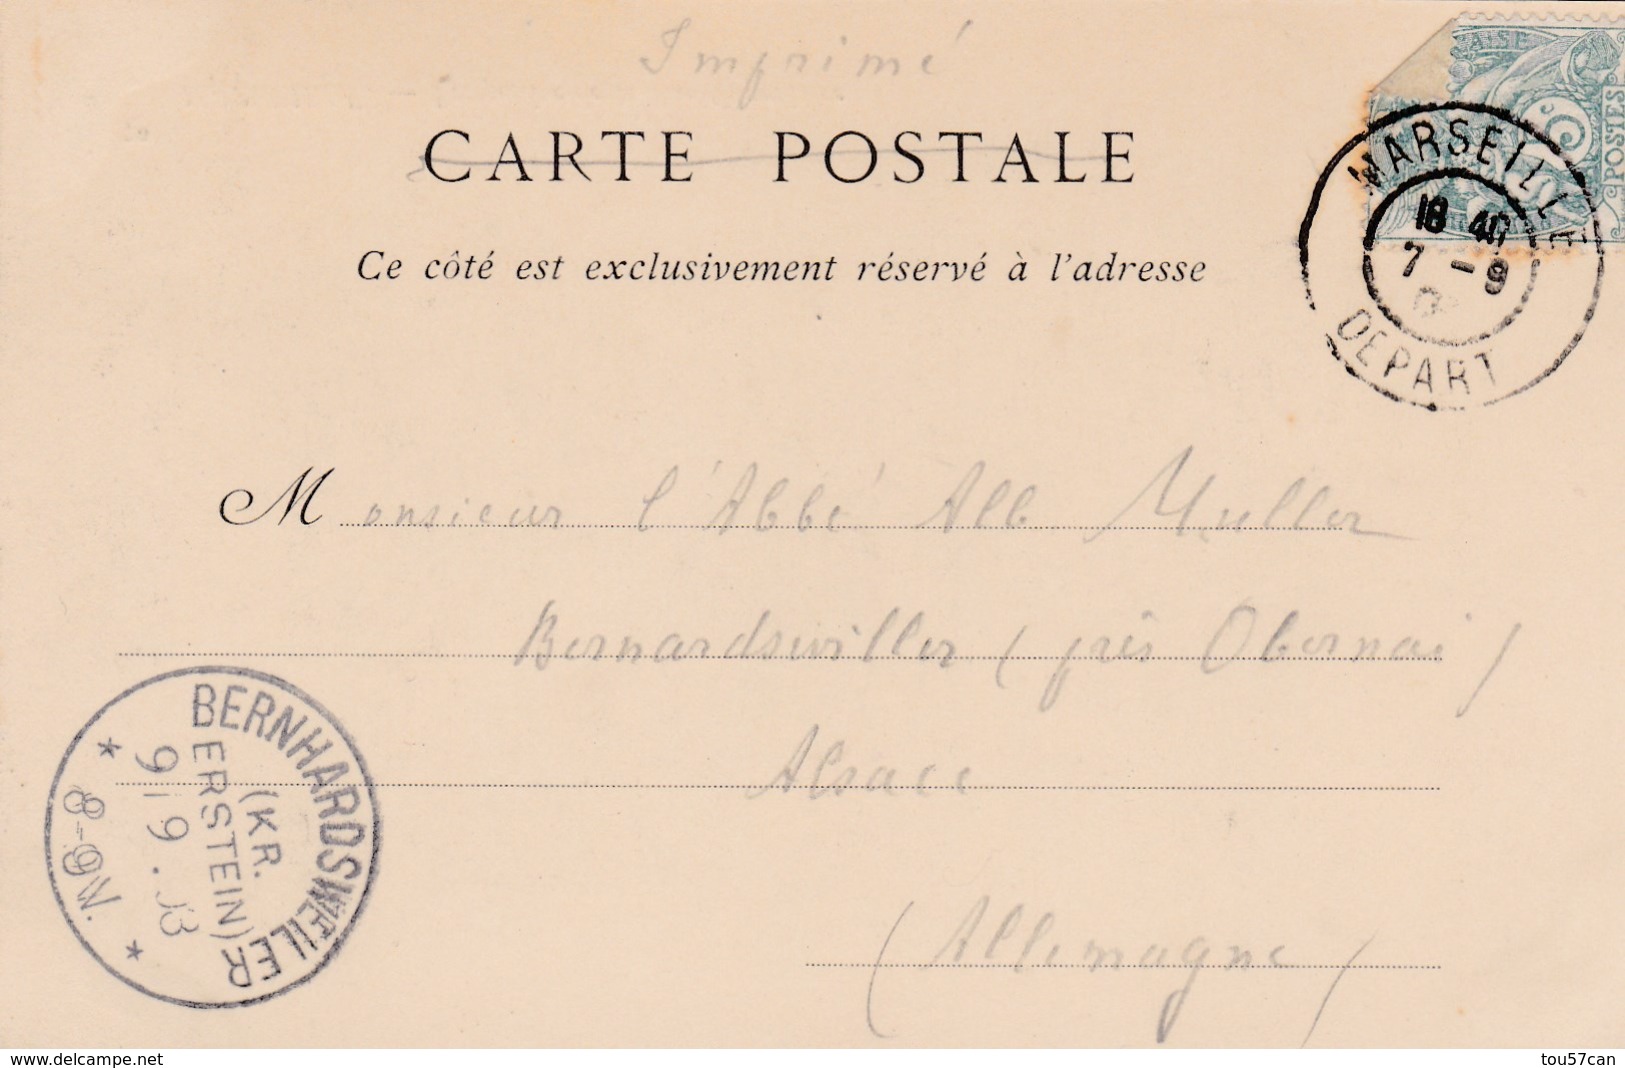 Imprimé
CARTE POSTALE
Ce côté est exclusivement réservé à l'adresse
AISE
5
POSTES
MARSEILLE
18 40
7 - 9
DEPART
Monsieur l'Abbé Alb. Muller
Bernardswiller (près Obernai)
Alsace
(Allemagne)
BERNHARDSWEILER
(KR.
ERSTEIN)
9/9.03
8-9V.
www.delcampe.net
tou57can